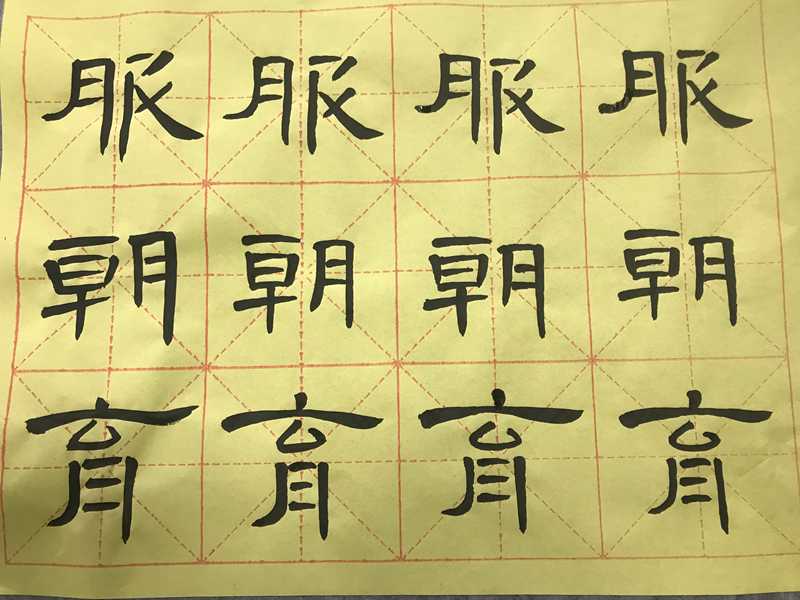 服服服服
朝朝朝朝
育育育育